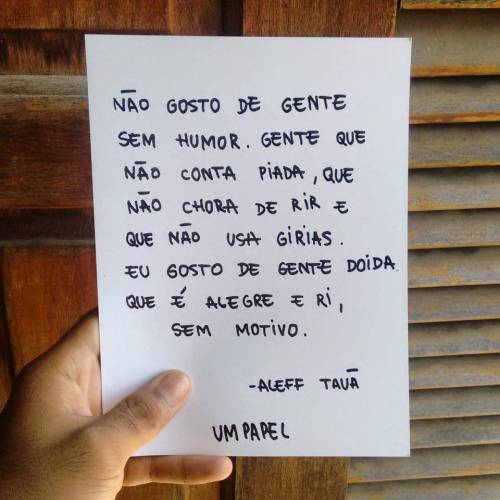 NÃO GOSTO DE GENTE
SEM HUMOR. GENTE QUE
NÃO CONTA PIADA, QUE
NÃO CHORA DE RIR E
QUE NÃO USA GÍRIAS.
EU GOSTO DE GENTE DOIDA
QUE É ALEGRE E RI,
SEM MOTIVO.
-ALEFF TAUÃ
UM PAPEL